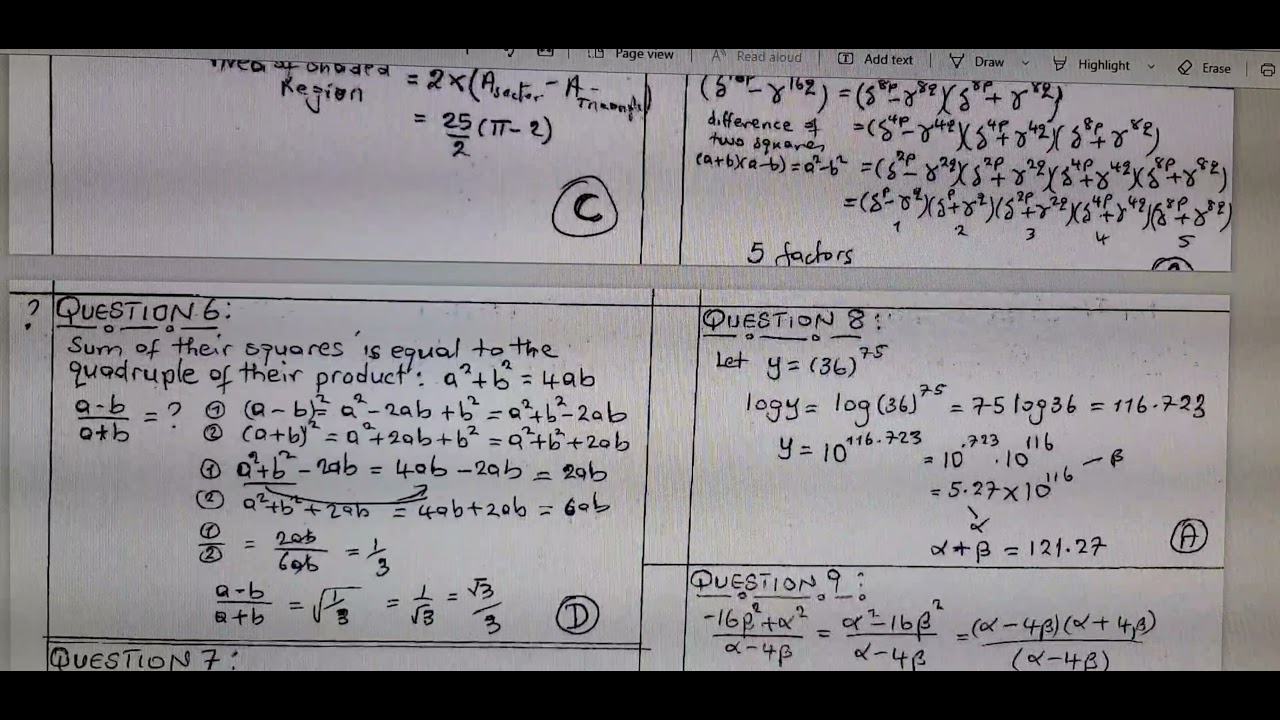 Page view
Read aloud
Add text
Draw
Highlight
Erase
Area of Shaded
Region
= 2×(A_sector - A_Triangle)
= 25/2 (π-2)
C
= (δ^8p - γ^8q)(δ^8p + γ^8q)
difference of
two squares
(a+b)(a-b) = a²-b²
= (δ^4p - γ^4q)(δ^4p + γ^4q)(δ^8p + γ^8q)
= (δ^2p - γ^2q)(δ^2p + γ^2q)(δ^4p + γ^4q)(δ^8p + γ^8q)
= (δ^p - γ^q)(δ^p + γ^q)(δ^2p + γ^2q)(δ^4p + γ^4q)(δ^8p + γ^8q)
1 2 3 4 5
5 factors
? QUESTION 6:
Sum of their squares is equal to the
quadruple of their product: a²+b² = 4ab
(a-b)/(a+b) = ? ① (a-b)² = a²-2ab+b² = a²+b²-2ab
② (a+b)² = a²+2ab+b² = a²+b²+2ab
① a²+b²-2ab = 4ab-2ab = 2ab
② a²+b²+2ab = 4ab+2ab = 6ab
①/② = 2ab/6ab = 1/3
(a-b)/(a+b) = √(1/3) = 1/√3 = √3/3
D
QUESTION 7:
QUESTION 8:
Let y = (36)^75
log y = log(36)^75 = 75 log 36 = 116.723
y = 10^116.723 = 10^.723 . 10^116 - β
= 5.27 × 10^116
α
α+β = 121.27
A
QUESTION 9:
(-16β²+α²)/(α-4β) = (α²-16β²)/(α-4β) = (α-4β)(α+4β)/(α-4β)